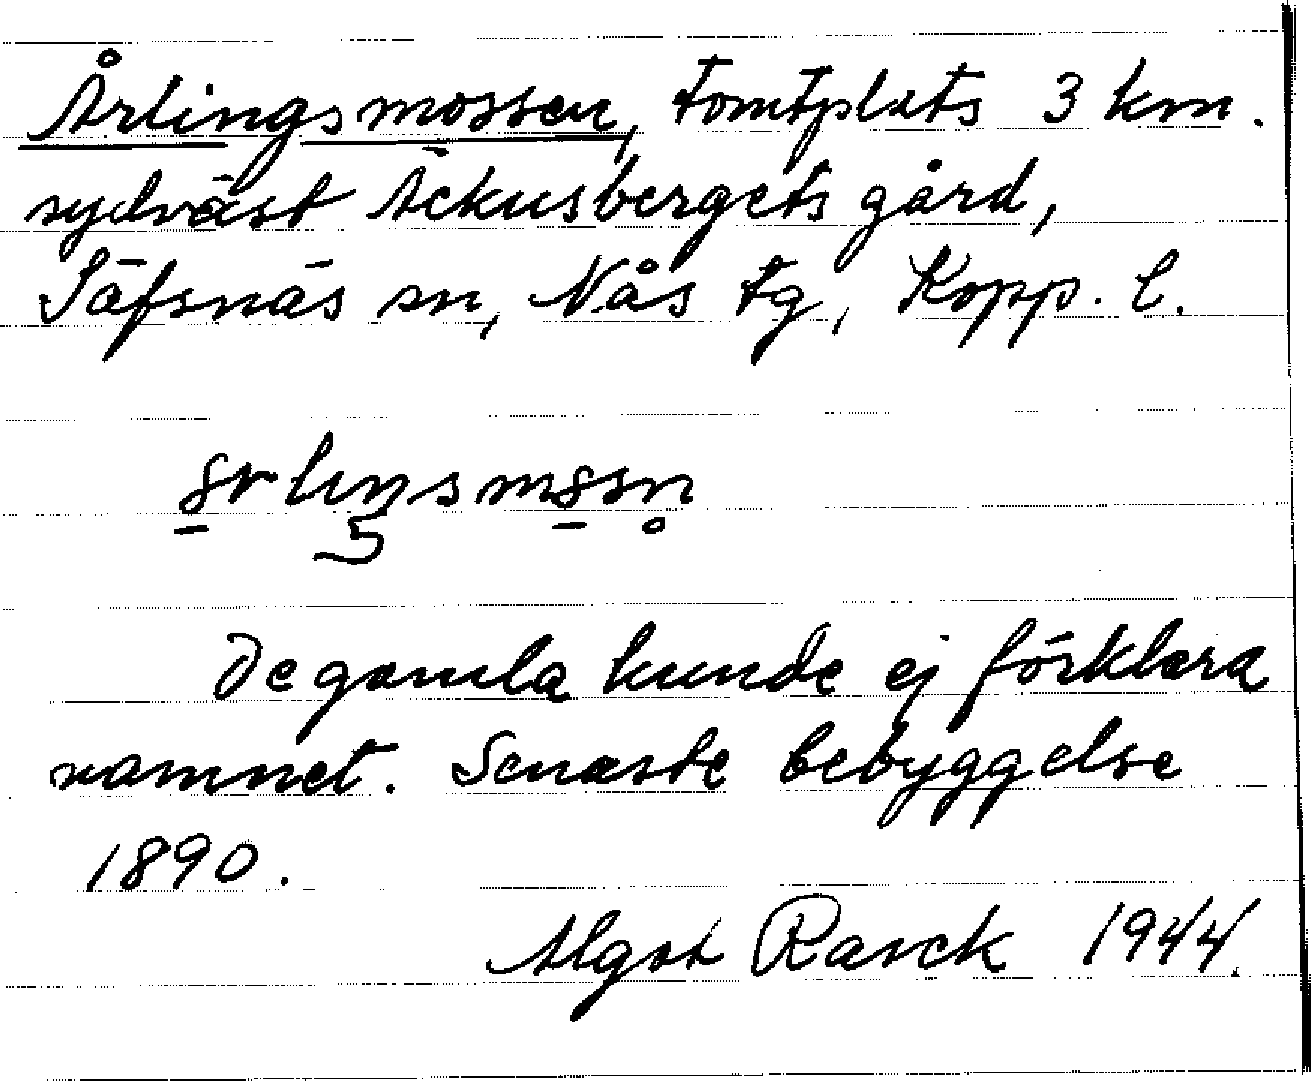 Årlingsmossen, Tomtplats 3 km.
sydväst Ackusbergets gård,
Säfsnäs sn, Nås tg, Kopp. l.
De gamla kunde ej förklara
namnet. Senaste bebyggelse
1890.
Algot Rasck 1944.